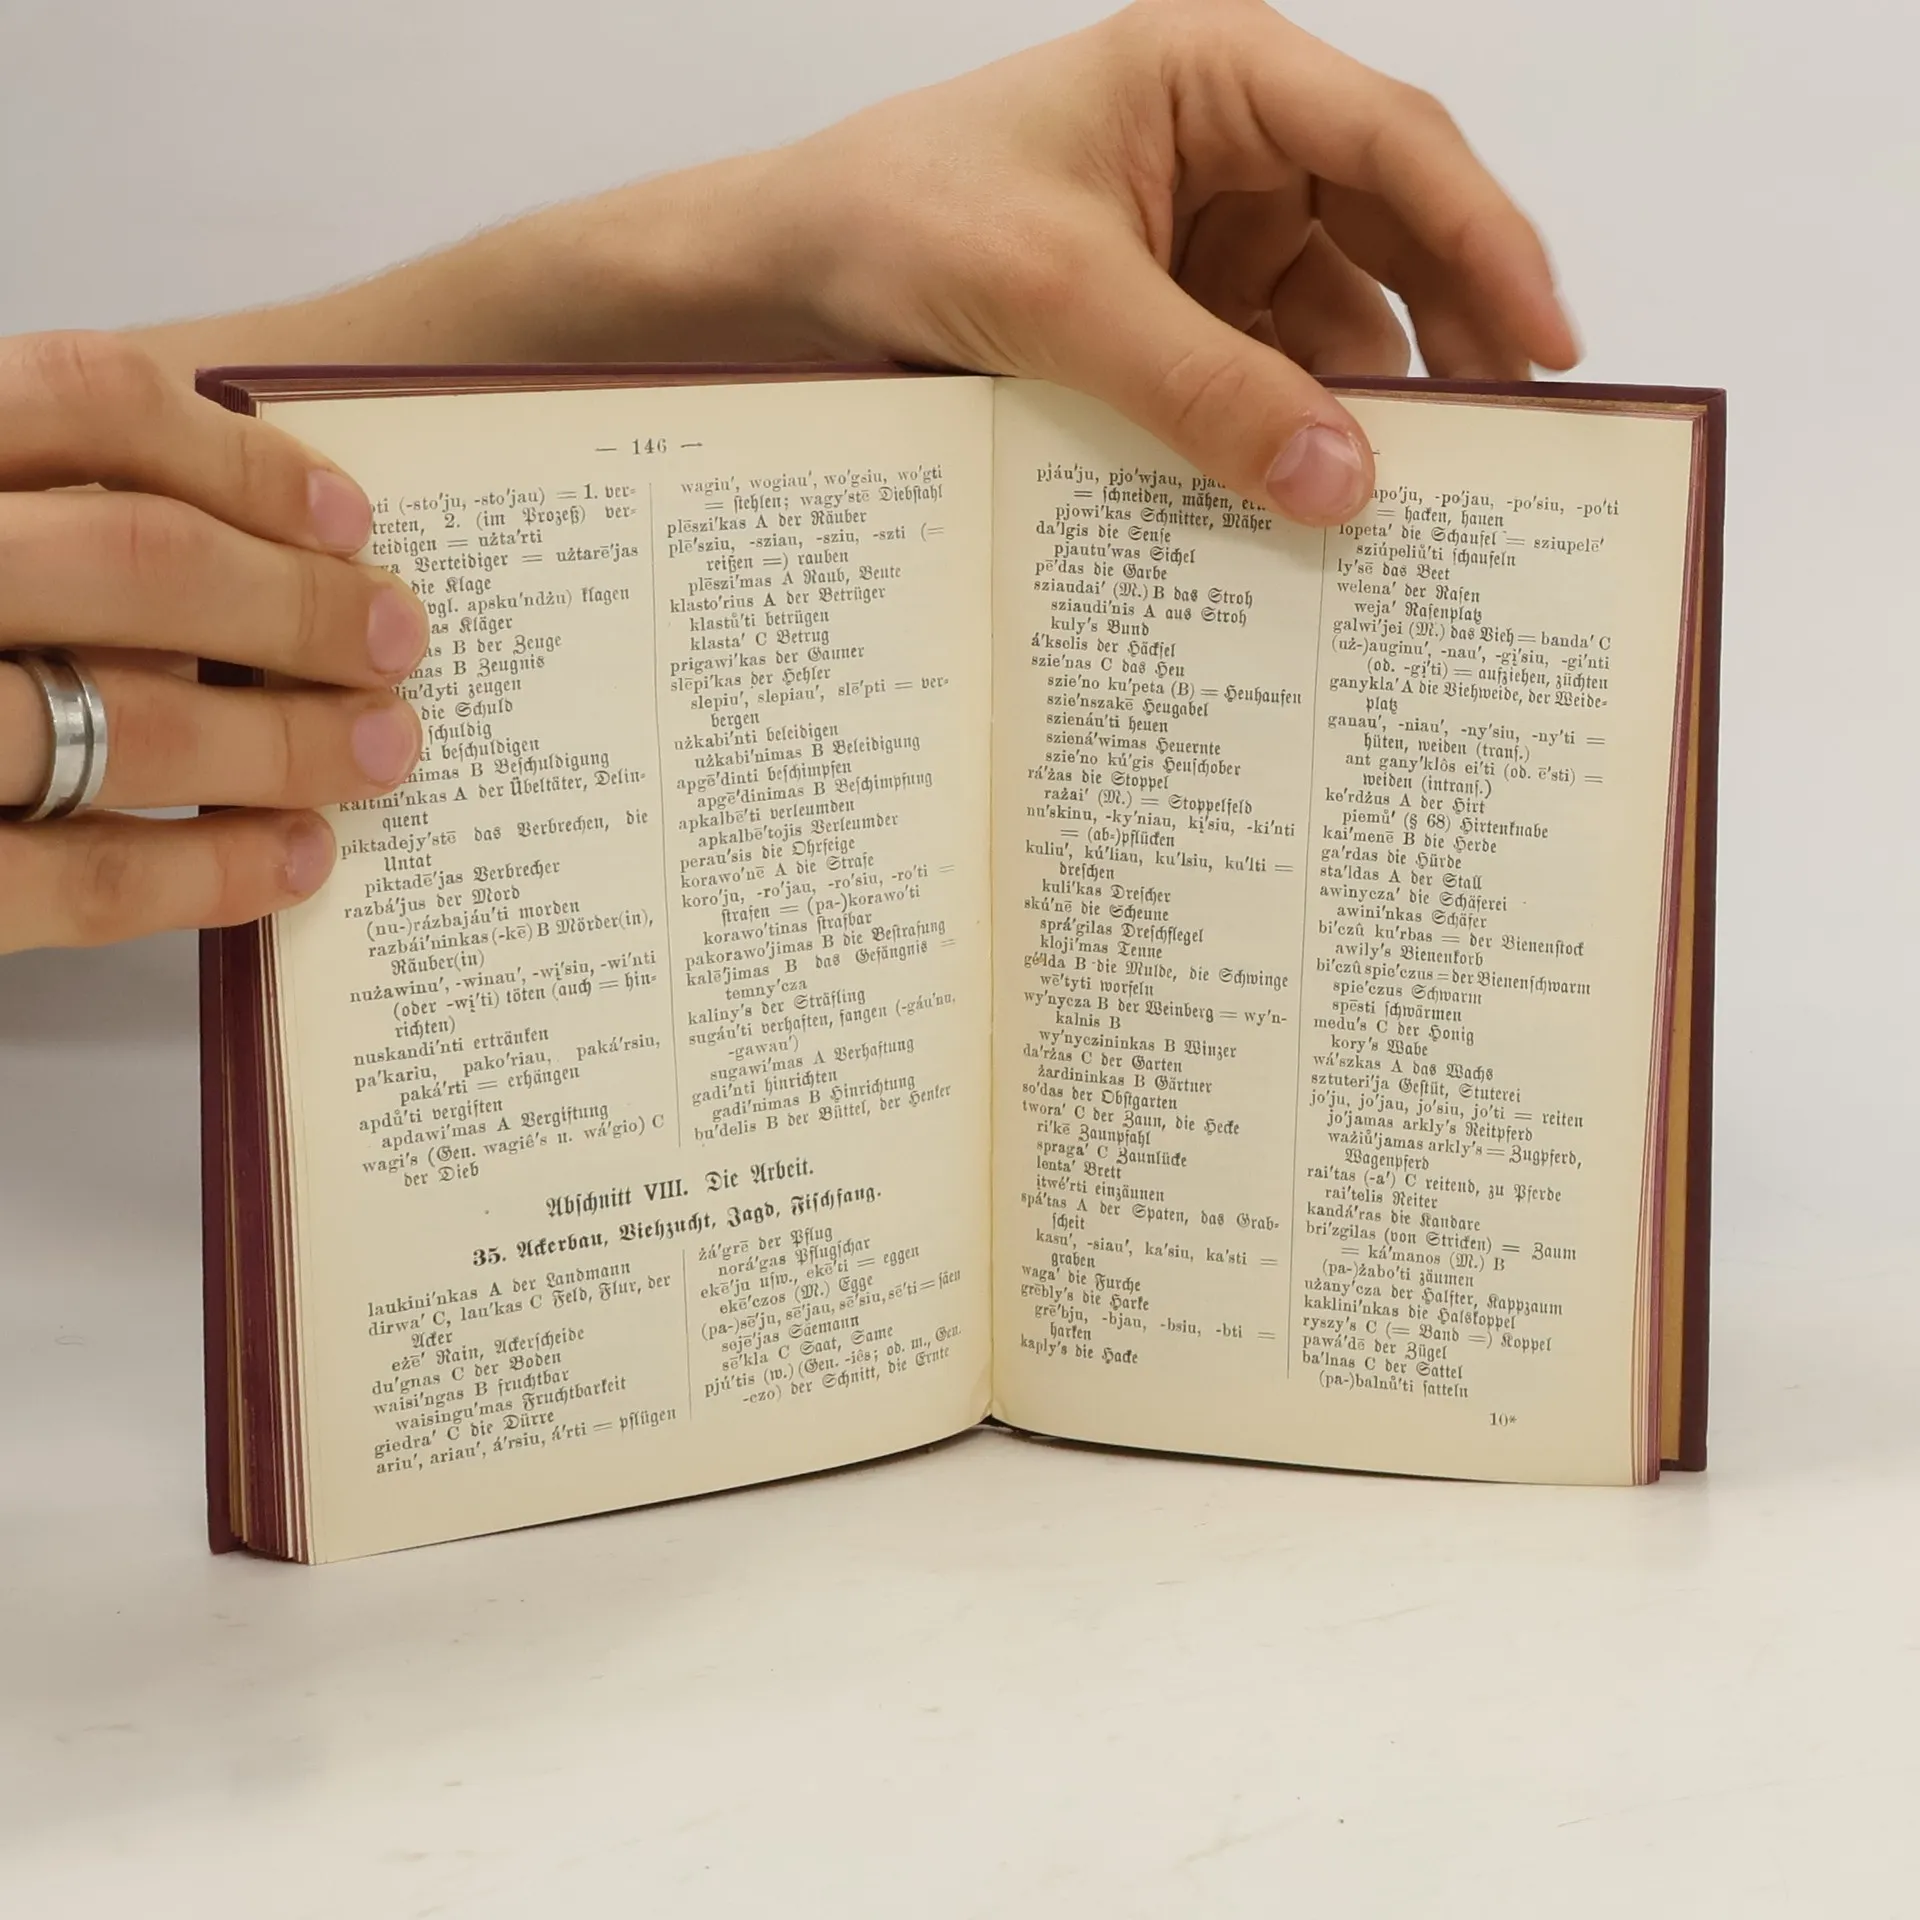 — 146 —
(-sto'ju, -sto'jau) = 1. ver=
treten, 2. (im Prozeß) ver=
teidigen = użta'rti
Verteidiger = użtarē'jas
die Klage
(vgl. apsku'ndżu) klagen
Kläger
B der Zeuge
B Zeugnis
zeugen
die Schuld
schuldig
beschuldigen
B Beschuldigung
kaltini'nkas A der Übeltäter, Delin=
quent
piktadejy'stē das Verbrechen, die
Untat
piktadē'jas Verbrecher
razbá'jus der Mord
(nu-)rázbajáu'ti morden
razbái'ninkas (-kē) B Mörder(in),
Räuber(in)
nużawinu', -winau', -wį'siu, -wi'nti
(oder -wį'ti) töten (auch = hin=
richten)
nuskandi'nti ertränken
pa'kariu, pako'riau, paká'rsiu,
paká'rti = erhängen
apdů'ti vergiften
apdawi'mas A Vergiftung
wagi's (Gen. wagiê's u. wá'gio) C
der Dieb
wagiu', wogiau', wo'gsiu, wo'gti
= stehlen; wagy'stē Diebstahl
plēszi'kas A der Räuber
plē'sziu, -sziau, -sziu, -szti (=
reißen =) rauben
plēszi'mas A Raub, Beute
klasto'rius A der Betrüger
klastů'ti betrügen
klasta' C Betrug
prigawi'kas der Gauner
slēpi'kas der Hehler
slepiu', slepiau', slē'pti = ver=
bergen
użkabi'nti beleidigen
użkabi'nimas B Beleidigung
apgē'dinti beschimpfen
apgē'dinimas B Beschimpfung
apkalbē'ti verleumden
apkalbē'tojis Verleumder
perau'sis die Ohrfeige
korawo'nē A die Strafe
koro'ju, -ro'jau, -ro'siu, -ro'ti =
strafen = (pa-)korawo'ti
korawo'tinas strafbar
pakorawo'jimas B die Bestrafung
kalē'jimas B das Gefängnis =
temny'cza
kaliny's der Sträfling
sugáu'ti verhaften, fangen (-gáu'nu,
-gawau')
sugawi'mas A Verhaftung
gadi'nti hinrichten
gadi'nimas B Hinrichtung
bu'delis B der Büttel, der Henker
Abschnitt VIII. Die Arbeit.
35. Ackerbau, Viehzucht, Jagd, Fischfang.
laukini'nkas A der Landmann
dirwa' C, lau'kas C Feld, Flur, der
Acker
eżē' Rain, Ackerscheide
du'gnas C der Boden
waisi'ngas B fruchtbar
waisingu'mas Fruchtbarkeit
giedra' C die Dürre
ariu', ariau', á'rsiu, á'rti = pflügen
żá'grē der Pflug
norá'gas Pflugschar
ekē'ju usw., ekē'ti = eggen
ekē'czos (M.) Egge
(pa-)sē'ju, sē'jau, sē'siu, sē'ti = säen
sējē'jas Säemann
sē'kla C Saat, Same
pjú'tis (w.) (Gen. -iês; od. m., Gen.
-czo) der Schnitt, die Ernte
pjáu'ju, pjo'wjau,
= schneiden, mähen,
pjowi'kas Schnitter, Mäher
da'lgis die Sense
pjautu'was Sichel
pē'das die Garbe
sziaudai' (M.) B das Stroh
sziaudi'nis A aus Stroh
kuly's Bund
á'kselis der Häcksel
szie'nas C das Heu
szie'no ku'peta (B) = Heuhaufen
szie'nszakē Heugabel
szienáu'ti heuen
szienā'wimas Heuernte
szie'no kú'gis Heuschober
rá'żas die Stoppel
rażai' (M.) = Stoppelfeld
nu'skinu, -ky'niau, kį'siu, -ki'nti
= (ab=)pflücken
kuliu', kú'liau, ku'lsiu, ku'lti =
dreschen
kuli'kas Drescher
skú'nē die Scheune
sprá'gilas Dreschflegel
kloji'mas Tenne
gélda B die Mulde, die Schwinge
wē'tyti worfeln
wy'nycza B der Weinberg = wy'n-
kalnis B
wy'nyczininkas B Winzer
da'rżas C der Garten
żardininkas B Gärtner
so'das der Obstgarten
twora' C der Zaun, die Hecke
ri'kē Zaunpfahl
spraga' C Zaunlücke
lenta' Brett
įtwé'rti einzäunen
spá'tas A der Spaten, das Grab=
scheit
kasu', -siau', ka'siu, ka'sti =
graben
waga' die Furche
grēbly's die Harke
grē'bju, -bjau, -bsiu, -bti =
harken
kaply's die Hacke
-po'jau, -po'siu, -po'ti
= hacken, hauen
lopeta' die Schaufel = sziupelē'
sziúpeliů'ti schaufeln
ly'sē das Beet
welena' der Rasen
weja' Rasenplatz
galwi'jei (M.) das Vieh = banda' C
(uż-)auginu', -nau', -gį'siu, -gi'nti
(od. -gį'ti) = aufziehen, züchten
ganykla' A die Viehweide, der Weide=
platz
ganau', -niau', -ny'siu, -ny'ti =
hüten, weiden (trans.)
ant gany'klôs ei'ti (od. ē'sti) =
weiden (intrans.)
ke'rdżus A der Hirt
piemů' (§ 68) Hirtenknabe
kai'menē B die Herde
ga'rdas die Hürde
sta'ldas A der Stall
awinycza' die Schäferei
awini'nkas Schäfer
bi'czû ku'rbas = der Bienenstock
awily's Bienenkorb
bi'czû spie'czus = der Bienenschwarm
spie'czus Schwarm
spēsti schwärmen
medu's C der Honig
kory's Wabe
wá'szkas A das Wachs
sztuteri'ja Gestüt, Stuterei
jo'ju, jo'jau, jo'siu, jo'ti = reiten
jo'jamas arkly's Reitpferd
ważiů'jamas arkly's = Zugpferd,
Wagenpferd
rai'tas (-a') C reitend, zu Pferde
rai'telis Reiter
kandá'ras die Kandare
bri'zgilas (von Stricken) = Zaum
= ká'manos (M.) B
(pa-)żabo'ti zäumen
użany'cza der Halfter, Kappzaum
kaklini'nkas die Halskoppel
ryszy's C (= Band =) Koppel
pawá'dē der Zügel
ba'lnas C der Sattel
(pa-)balnů'ti satteln
10*